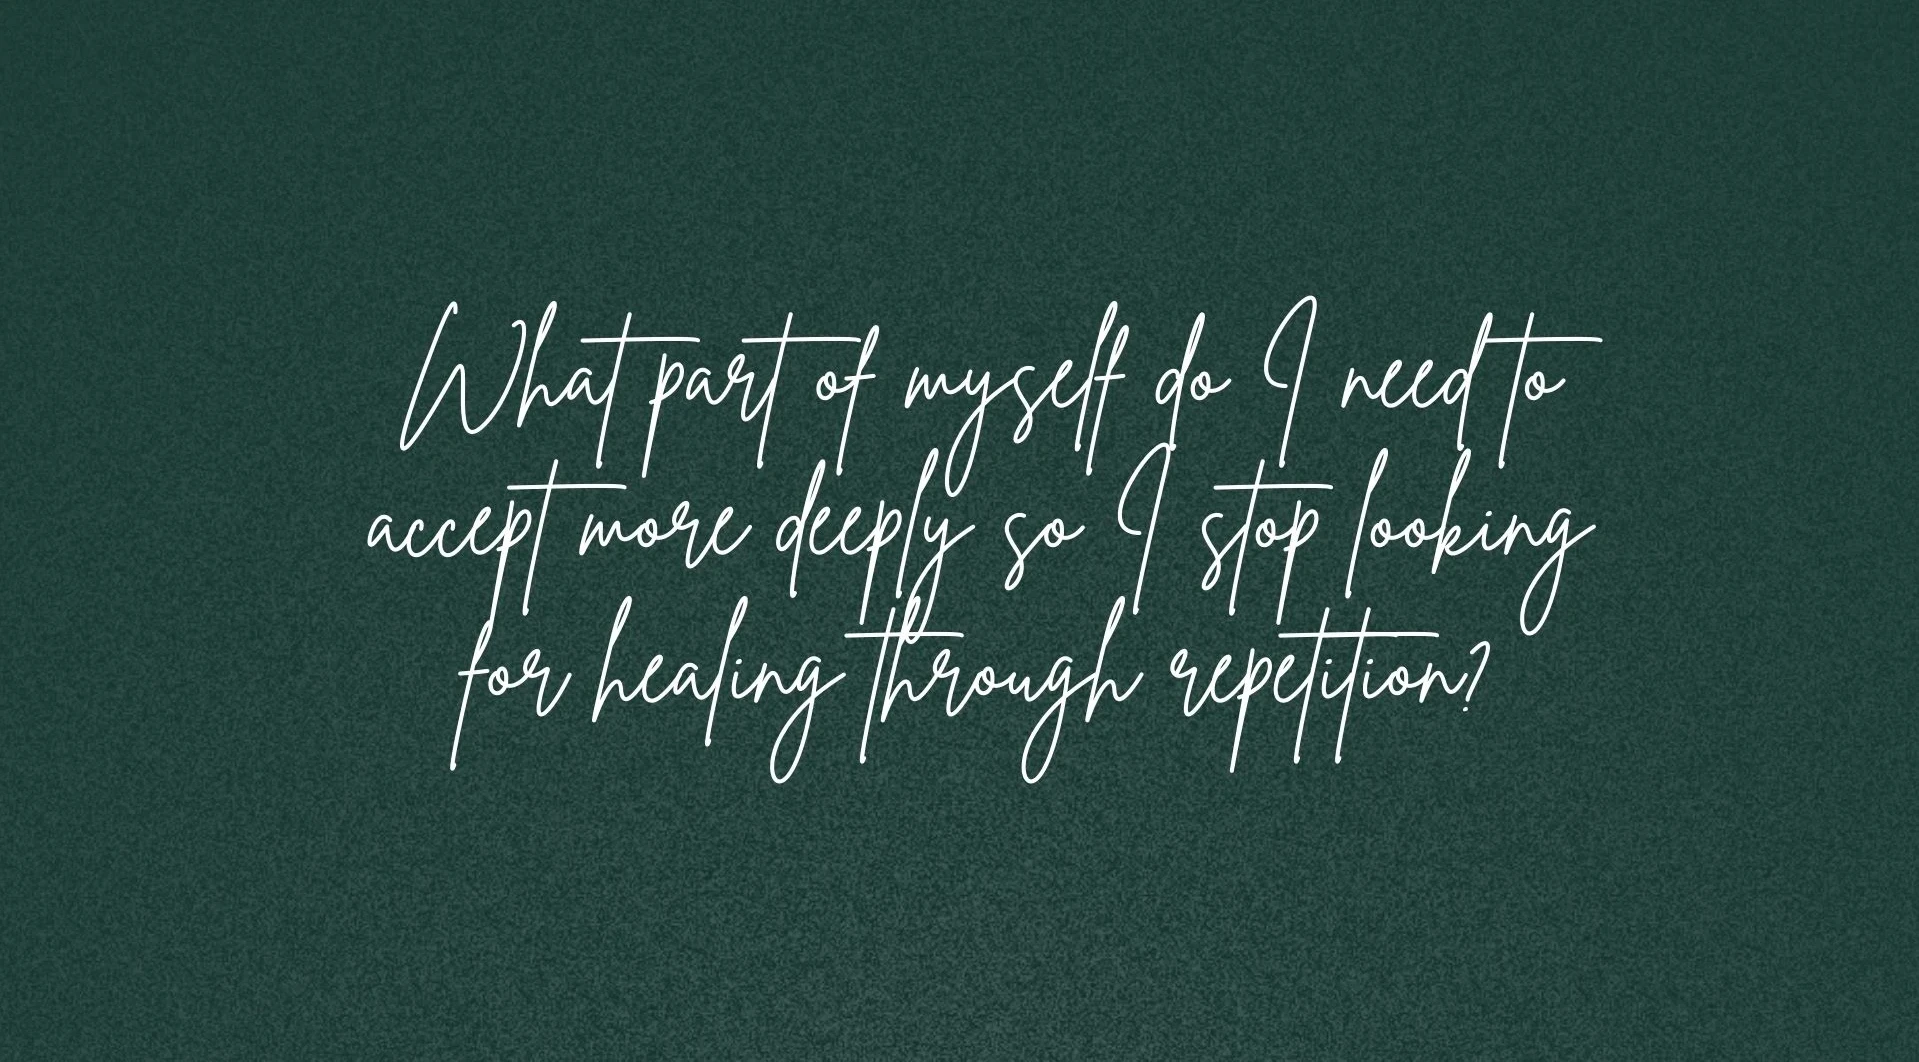 What part of myself do I need to
accept more deeply so I stop looking
for healing through repetition?